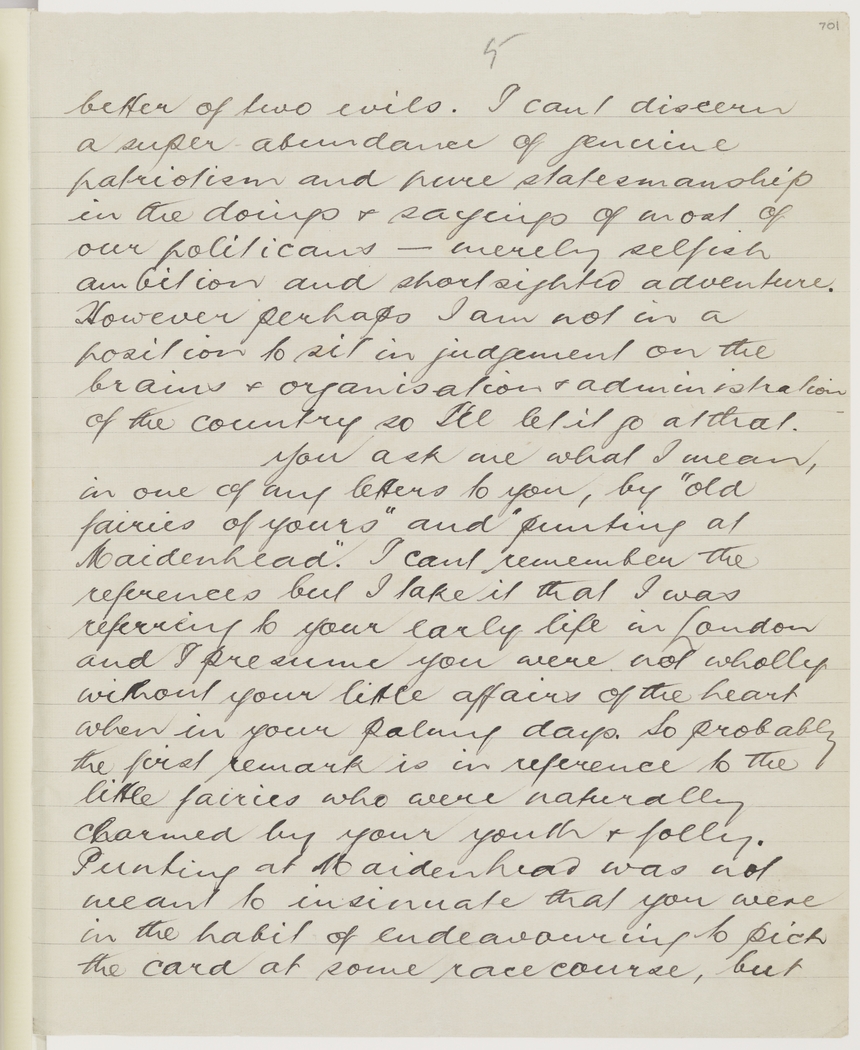 701
5
better of two evils. I can't discern
a super-abundance of genuine
patriotism and pure statesmanship
in the doings & sayings of most of
our politicans — merely selfish
ambition and shortsighted adventure.
However perhaps I am not in a
position to sit in judgement on the
brains & organisation & administration
of the country so I'll let it go at that.
You ask me what I mean,
in one of my letters to you, by "old
fairies of yours" and "punting at
Maidenhead". I cant remember the
references but I take it that I was
referring to your early life in London
and I presume you were not wholly
without your little affairs of the heart
when in your palmy days. So probably
the first remark is in reference to the
little fairies who were naturally
charmed by your youth & folly.
Punting at Maidenhead was not
meant to insinuate that you were
in the habit of endeavouring to pick
the card at some racecourse, but